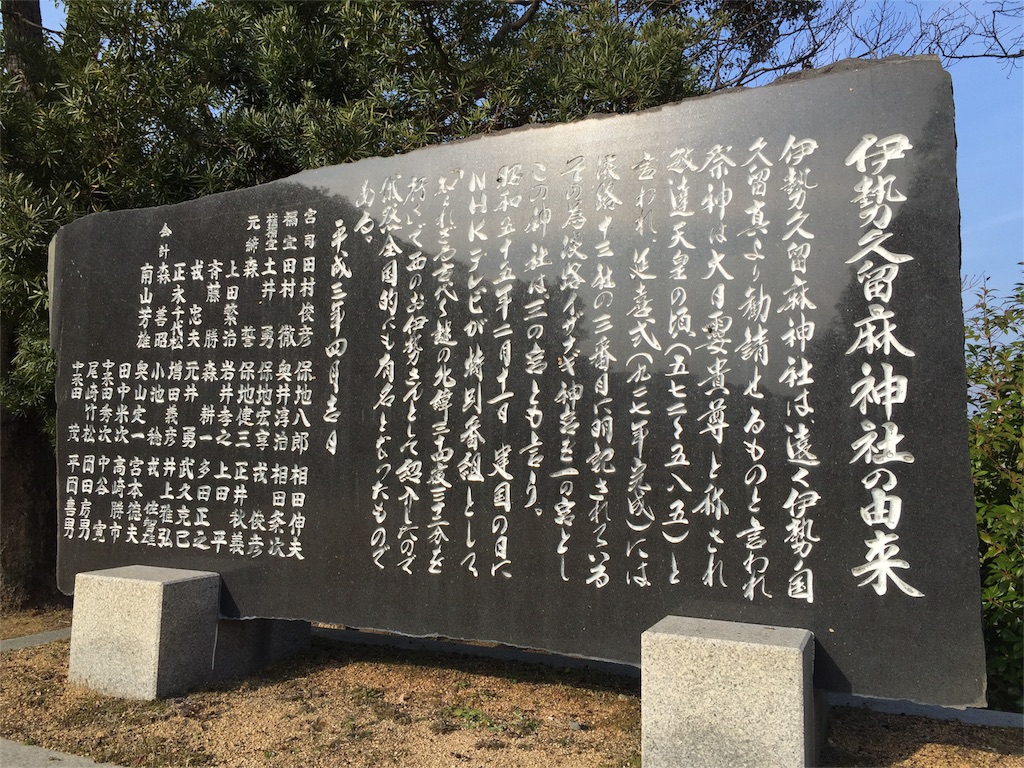 伊勢久留麻神社の由来
伊勢久留麻神社は、遠く伊勢の国
久留真より勧請せるものと言われ
祭神は大日孁貴尊と称され
敏達天皇の頃(五七二〜五八五)と
言われ、延喜式(九二七年完成)には
淡路十三社の二番目に明記されている
その為淡路イザナギ神宮を一の宮とし
この神社は二の宮とも言う。
昭和五十五年二月十一日 建国の日に
NHKテレビが特別番組として
知られざる古代の北緯三四度三二分を
行く、西のお伊勢さんとして紹介したので
淡路、全国的にも有名となったもので
ある。
平成三年四月吉日
宮司 田村俊彦
禰宜 田村 徹
権禰宜 土井 勇
元総 森 誉
上田繁治
斉藤 勝
戎 忠夫
正木千代松
会計 森 善昭
南山芳雄
保地八郎
奥井淳治
保地宏享
保地健三
岩井孝之
森 耕一
元井 勇
増田義彦
小池 稔
奥山定一
田中米次
中田秀次
尾崎竹松
中田 茂
相田伸夫
相田条次
戎 俊彦
正井秋義
上田 平
多田正之
武久克己
井上雅弘
戎 佐智雄
宮本徳夫
高崎勝市
中谷 寛
岡田房男
平岡喜男